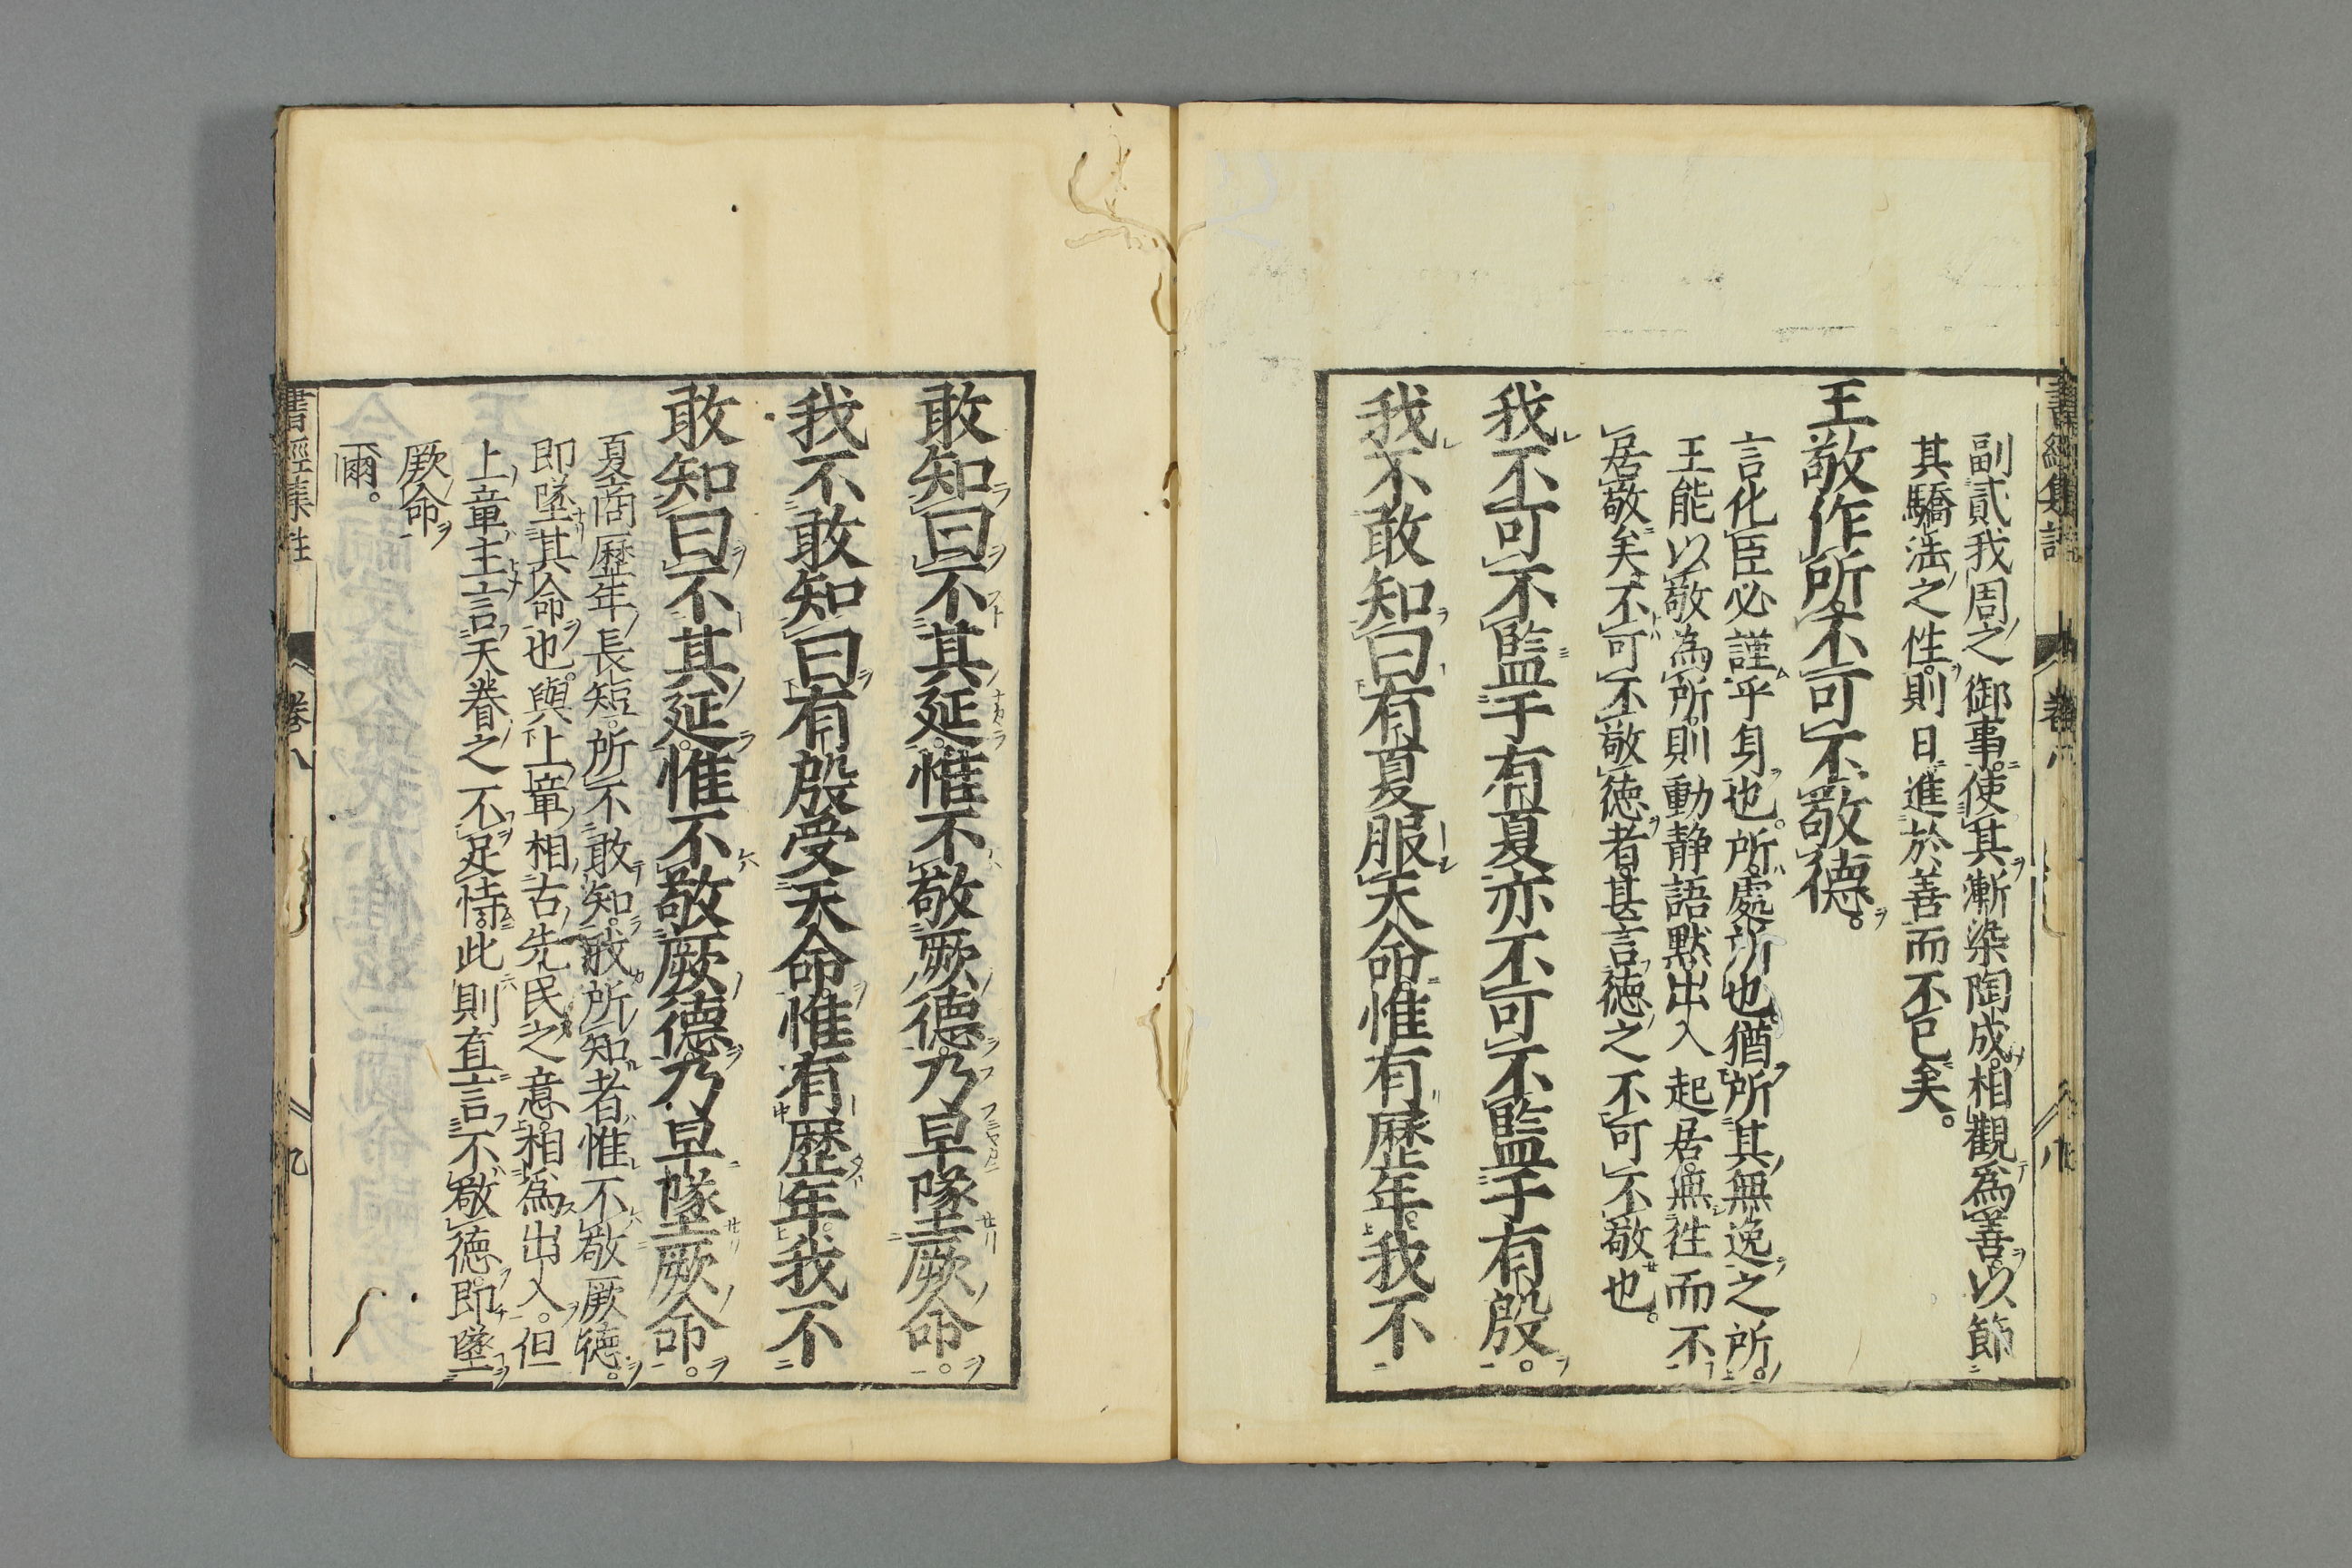 書經集註 卷八 八
副貳我周之御事使其漸染陶成。相觀為善。以節
其驕淫之性。則日進於善而不已矣。
王敬作所不可不敬德。
言化臣必謹乎身也。所。處所也。猶所其無逸之所。
王能以敬為所。則動静語默。出入起居。無徃而不
居敬矣。不可不敬德者。甚言德之不可不敬也。
我不可不監于有夏亦不可不監于有殷。
我不敢知曰有夏服天命。惟有歷年。我不
敢知曰不其延。惟不敬厥德。乃早墜厥命。
我不敢知曰有殷受天命。惟有歷年。我不
敢知曰不其延。惟不敬厥德。乃早墜厥命。
夏商歷年長短。所不敢知。我所知者。惟不敬厥德。
即墜其命也。與上章相古先民之意。相為出入。但
上章主言天眷之不足恃。此則直言不敬德。即墜
厥命
爾。
書經集註 卷八 九